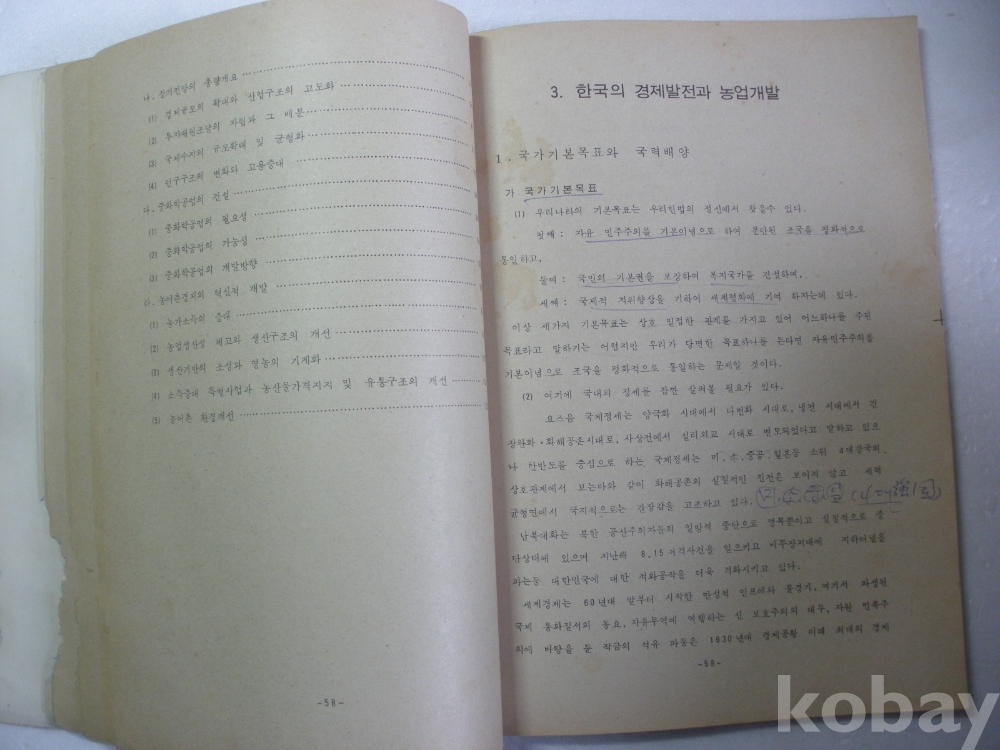 나. 장기전망의 총량개요
(1) 경제규모의 확대와 산업구조의 고도화
(2) 투자재원조달의 자립과 그 배분
(3) 국제수지의 규모확대 및 균형화
(4) 인구구조의 변화와 고용증대
다. 중화학공업의 건설
(1) 중화학공업의 필요성
(2) 중화학공업의 가능성
(3) 중화학공업의 개발방향
라. 농어촌경제의 혁신적 개발
(1) 농가소득의 증대
(2) 농업생산성 제고와 생산구조의 개선
(3) 생산기반의 조성과 영농의 기계화
(4) 소득증대 특별사업과 농산물가격지지 및 유통구조의 개선
(5) 농어촌 환경개선
-58-
3. 한국의 경제발전과 농업개발
1. 국가기본목표와 국력배양
가 국가기본목표
(1) 우리나라의 기본목표는 우리헌법의 정신에서 찾을수 있다.
첫째: 자유 민주주의를 기본이념으로 하여 분단된 조국을 평화적으로
통일하고,
둘째: 국민의 기본권을 보장하여 복지국가를 건설하며,
세째: 국제적 지위향상을 기하여 세계평화에 기여 하자는데 있다.
이상 세가지 기본목표는 상호 밀접한 관계를 가지고 있어 어느하나를 주된
목표라고 말하기는 어렵지만 우리가 당면한 목표하나를 든다면 자유민주주의를
기본이념으로 조국을 평화적으로 통일하는 문제일 것이다.
(2) 여기에 국내외 정세를 잠깐 살펴볼 필요가 있다.
요즈음 국제정세는 양극화 시대에서 다변화 시대로, 냉전 시대에서 긴
장완화·화해공존시대로, 사상전에서 실리외교 시대로 변모되었다고 말하고 있으
나 한반도를 중심으로 하는 국제정세는 미, 소, 중공, 일본등 소위 4대강국의
상호관계에서 보는바와 같이 화해공존의 실질적인 진전은 보이지 않고 세력
균형면에서 국지적으로는 긴장감을 고조하고 있다.
남북대화는 북한 공산주의자들의 일방적 중단으로 명목뿐이고 실질적으로 중
단상태에 있으며 지난해 8.15 저격사건을 일으키고 비무장지대에 지하터널을
파는등 대한민국에 대한 적화공작을 더욱 격화시키고 있다.
세계경제는 60년대 말부터 시작한 만성적 인프레와 불경기, 여기서 파생된
국제 통화질서의 동요, 자유무역에 역행하는 신 보호주의의 대두, 자원 민족주
의에 바탕을 둔 작금의 석유 파동은 1930년대 경제공황 이래 최대의 경제
-58-
kobay